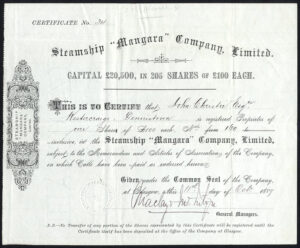 CERTIFICATE No. 34
Steamship "Mangara" Company, Limited.
CAPITAL £20,500, IN 205 SHARES OF £100 EACH.
THIS IS TO CERTIFY that John Esqre
is registered Proprietor of
one Share of each No. from 160 to
inclusive, in the Steamship "Mangara" Company, Limited,
subject to the Memorandum and Articles of Association of the Company,
on which Calls have been paid as noticed hereon.
Given under the Common Seal of the Company
at Glasgow this day of 18
General Managers.
N.B.—No Transfer of any portion of the Shares represented by this Certificate will be registered until the
Certificate itself has been deposited at the Office of the Company at Glasgow.